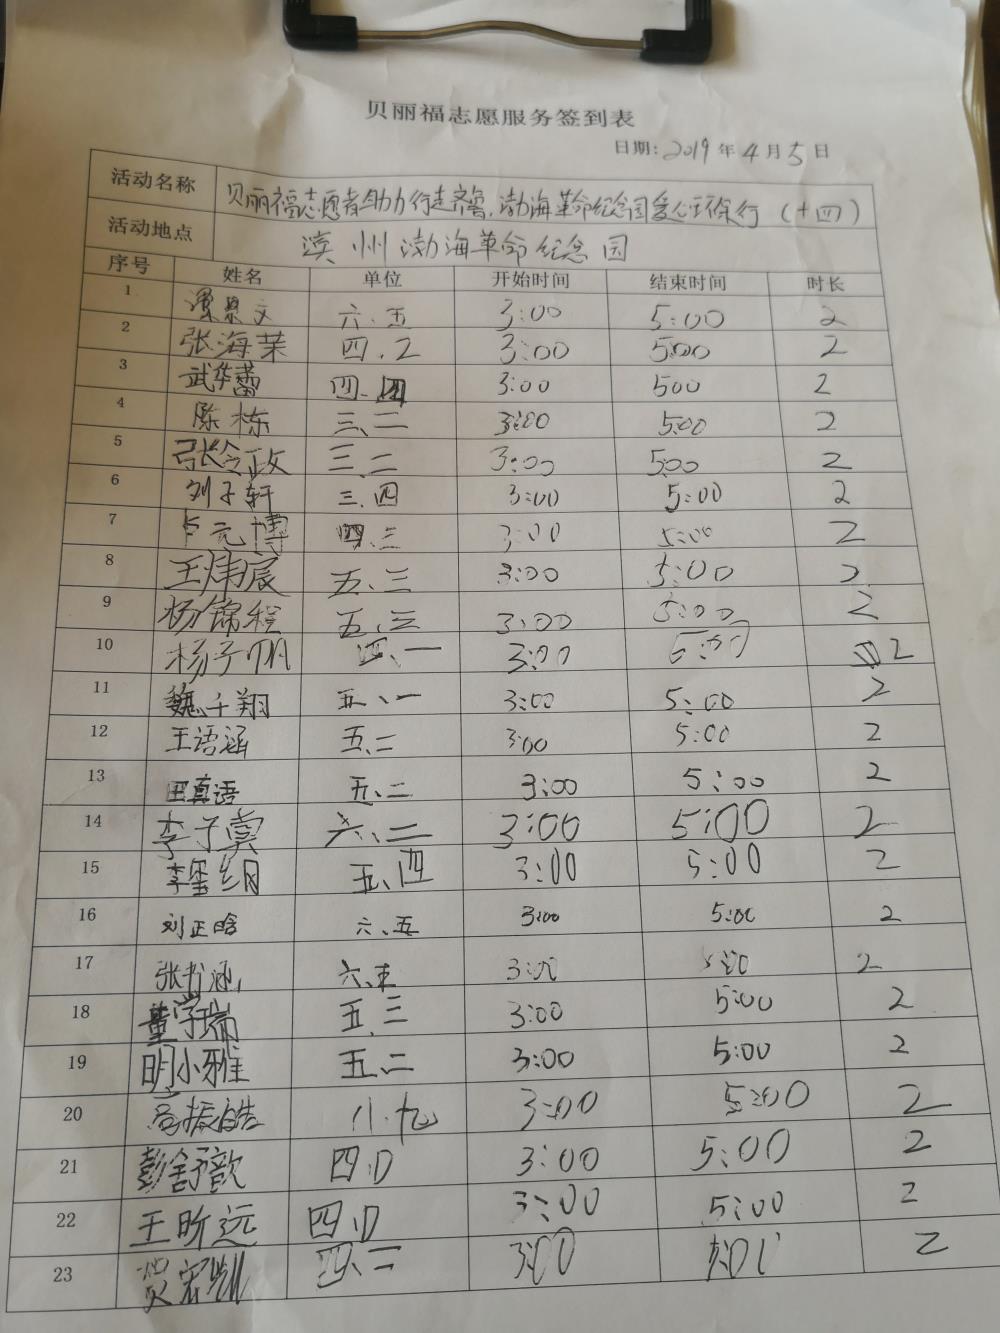 贝丽福志愿服务签到表
日期: 2019 年 4 月 5 日
活动名称 贝丽福志愿者助力行走齐鲁,渤海革命纪念园爱心环保行(十四)
活动地点 滨州渤海革命纪念园
序号 姓名 单位 开始时间 结束时间 时长
1 文 六.五 3:00 5:00 2
2 张海茉 四.2 3:00 500 2
3 武华蕾 四.四 3:00 500 2
4 陈栋 三、二 3:00 5:00 2
5 张令政 三、二 3:00 500 2
6 刘子轩 三.四 3:00 5:00 2
7 卢元博 四、三 3:00 5:00 2
8 王炜宸 五、三 3:00 5:00 2
9 杨锦程 五、三 3:00 5:00 2
10 杨子 四、一 3:00 5:00 2
11 魏千翔 五、一 3:00 5:00 2
12 王语涵 五、二 3:00 5:00 2
13 田真语 五、二 3:00 5:00 2
14 李子 六、二 3:00 5:00 2
15 李 五、四 3:00 5:00 2
16 刘正晗 六、五 3:00 5:00 2
17 张书涵 六、 3:00 5:00 2
18 董学瑞 五、三 3:00 5:00 2
19 明小雅 五、二 3:00 5:00 2
20 高振皓 八.九 3:00 5:00 2
21 彭舒歆 四. 3:00 5:00 2
22 王昕远 四. 3:00 5:00 2
23 贾宏凯 四、二 3:00 2